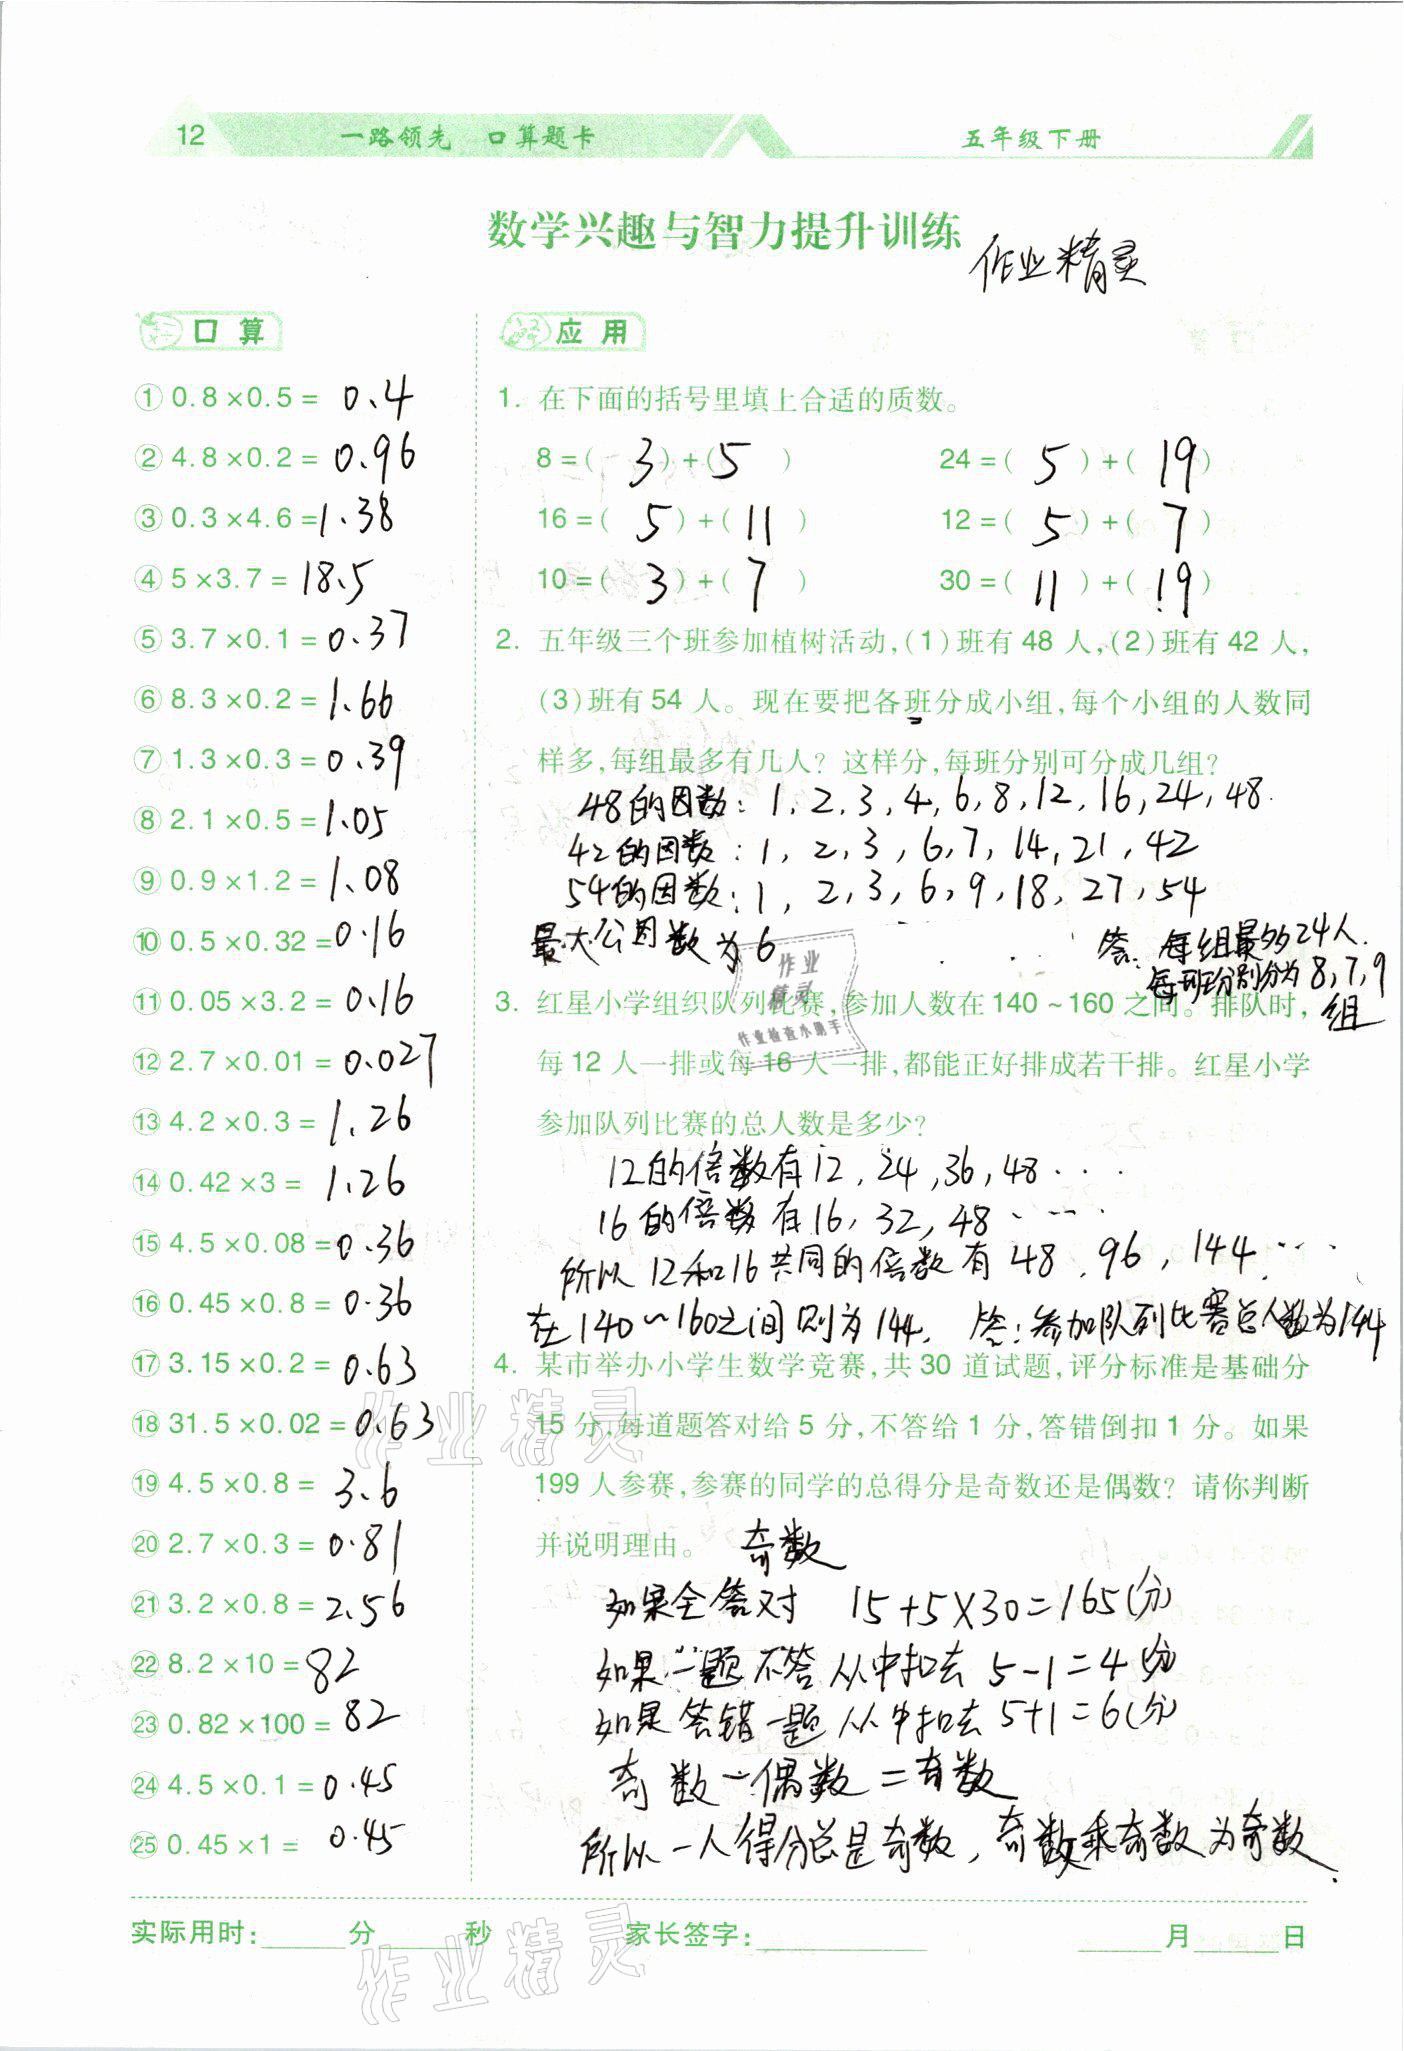 12 一路领先 口算题卡 五年级下册
数学兴趣与智力提升训练
作业精灵
口算
① 0.8×0.5= 0.4
② 4.8×0.2= 0.96
③ 0.3×4.6= 1.38
④ 5×3.7= 18.5
⑤ 3.7×0.1= 0.37
⑥ 8.3×0.2= 1.66
⑦ 1.3×0.3= 0.39
⑧ 2.1×0.5= 1.05
⑨ 0.9×1.2= 1.08
⑩ 0.5×0.32= 0.16
⑪ 0.05×3.2= 0.16
⑫ 2.7×0.01= 0.027
⑬ 4.2×0.3= 1.26
⑭ 0.42×3= 1.26
⑮ 4.5×0.08= 0.36
⑯ 0.45×0.8= 0.36
⑰ 3.15×0.2= 0.63
⑱ 31.5×0.02= 0.63
⑲ 4.5×0.8= 3.6
⑳ 2.7×0.3= 0.81
㉑ 3.2×0.8= 2.56
㉒ 8.2×10= 82
㉓ 0.82×100= 82
㉔ 4.5×0.1= 0.45
㉕ 0.45×1= 0.45
应用
1. 在下面的括号里填上合适的质数。
8=( 3 )+( 5 ) 24=( 5 )+( 19 )
16=( 5 )+( 11 ) 12=( 5 )+( 7 )
10=( 3 )+( 7 ) 30=( 11 )+( 19 )
2. 五年级三个班参加植树活动,(1)班有48人,(2)班有42人,
(3)班有54人。现在要把各班分成小组,每个小组的人数同
样多,每组最多有几人?这样分,每班分别可分成几组?
48的因数:1,2,3,4,6,8,12,16,24,48.
42的因数:1,2,3,6,7,14,21,42
54的因数:1,2,3,6,9,18,27,54
最大公因数为6
答:每组最多24人.
每班分别分为8,7,9
组
3. 红星小学组织队列比赛,参加人数在140~160之间。排队时,
每12人一排或每16人一排,都能正好排成若干排。红星小学
参加队列比赛的总人数是多少?
12的倍数有12,24,36,48····
16的倍数有16,32,48····
所以12和16共同的倍数有48,96,144····
在140~160之间则为144. 答:参加队列比赛总人数为144
4. 某市举办小学生数学竞赛,共30道试题,评分标准是基础分
15分,每道题答对给5分,不答给1分,答错倒扣1分。如果
199人参赛,参赛的同学的总得分是奇数还是偶数?请你判断
并说明理由。 奇数
如果全答对 15+5×30=165(分)
如果一题不答从中扣去 5-1=4(分)
如果答错一题从中扣去 5+1=6(分)
奇数-偶数=奇数
所以一人得分总是奇数,奇数乘奇数为奇数.
实际用时:______分______秒 家长签字:____________ ______月______日
作业
精灵
作业检查小助手
作业精灵
作业精灵